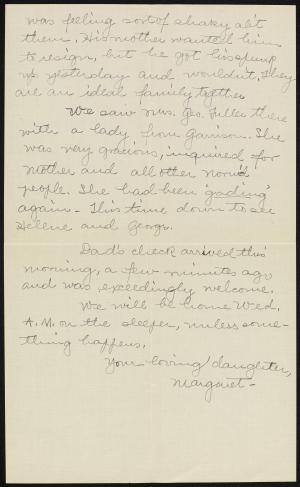 was feeling sort of shaky ab't
them. His mother wanted him
to resign, but he got his spunk
up yesterday and wouldn't. They
are an ideal family together.
We saw Mrs. Geo. Fuller there
with a lady from Garrison. She
was very gracious, inquired for
Mother and all other Norw'd
people. She had been "gading"
again - This time down to see
Helene and George.
Dad's check arrived this
morning, a few minutes ago
and was exceedingly welcome.
We will be home Wed.
A.M. on the sleeper, unless some-
thing happens.
Your loving daughter,
Margaret -